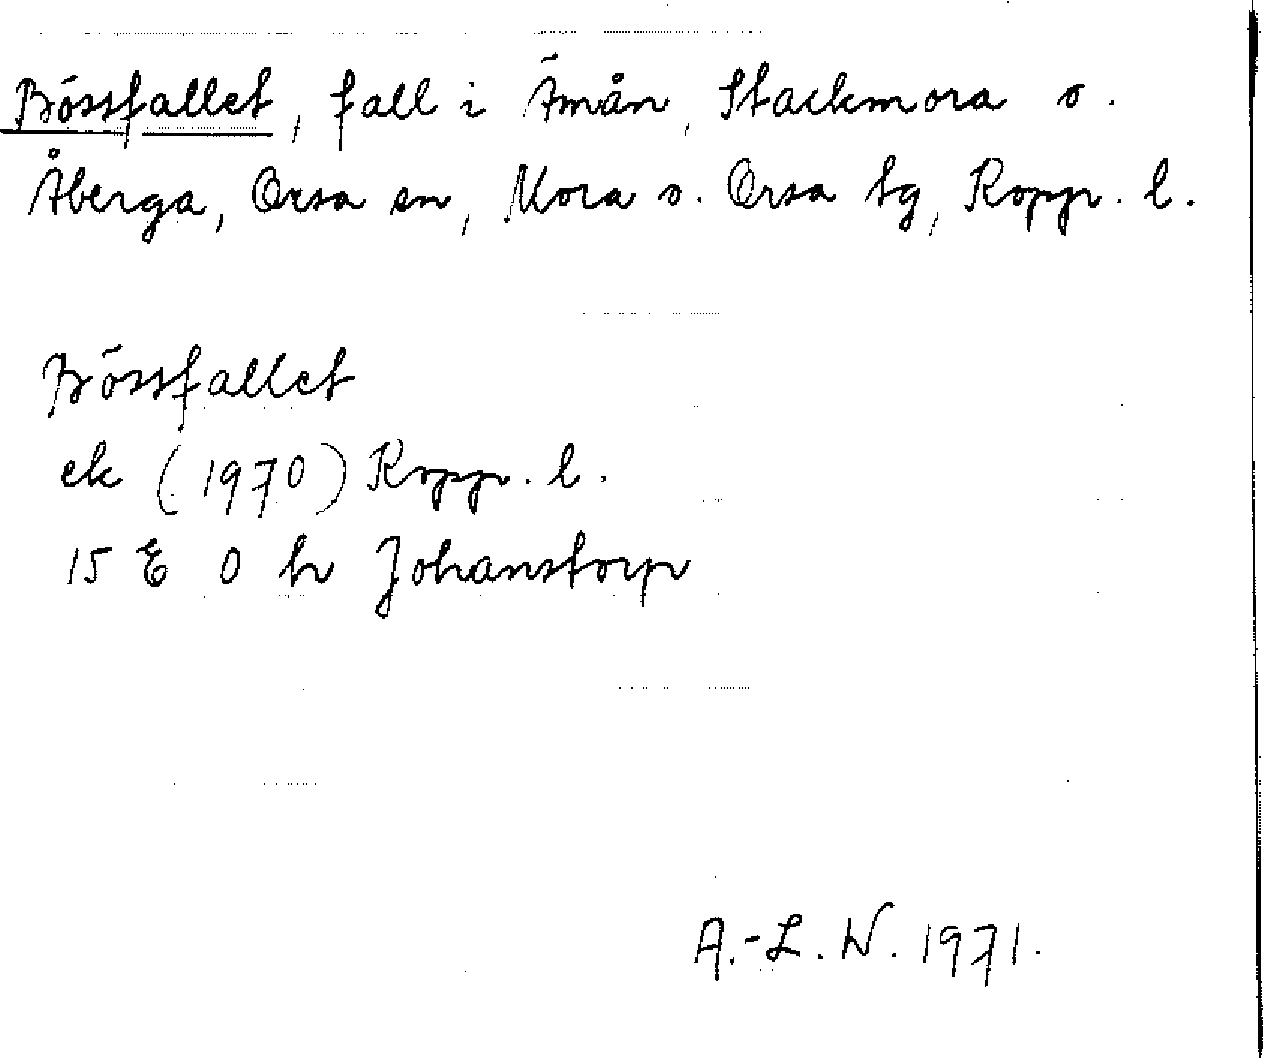 Bössfallet, fall i Ämån, Stackmora o.
Åberga, Orsa sn, Mora o. Orsa tg, Kopp. l.
Bössfallet
ek (1970) Kopp. l.
15 E 0 h Johanstorp
A.-L. W. 1971.